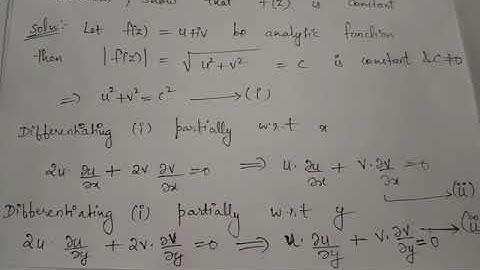 , show that f(z) is constant
Soln:- Let f(z) = u+iv be analytic function
then |f(z)| = √(u²+v²) = c is constant & c≠0
⇒ u²+v² = c² ⟶ (i)
Differentiating (i) partially w.r.t x
2u ∂u/∂x + 2v ∂v/∂x = 0 ⟹ u. ∂u/∂x + v. ∂v/∂x = 0
⟶ (ii)
Differentiating (i) partially w.r.t y
2u. ∂u/∂y + 2v. ∂v/∂y = 0 ⟹ u. ∂u/∂y + v. ∂v/∂y = 0